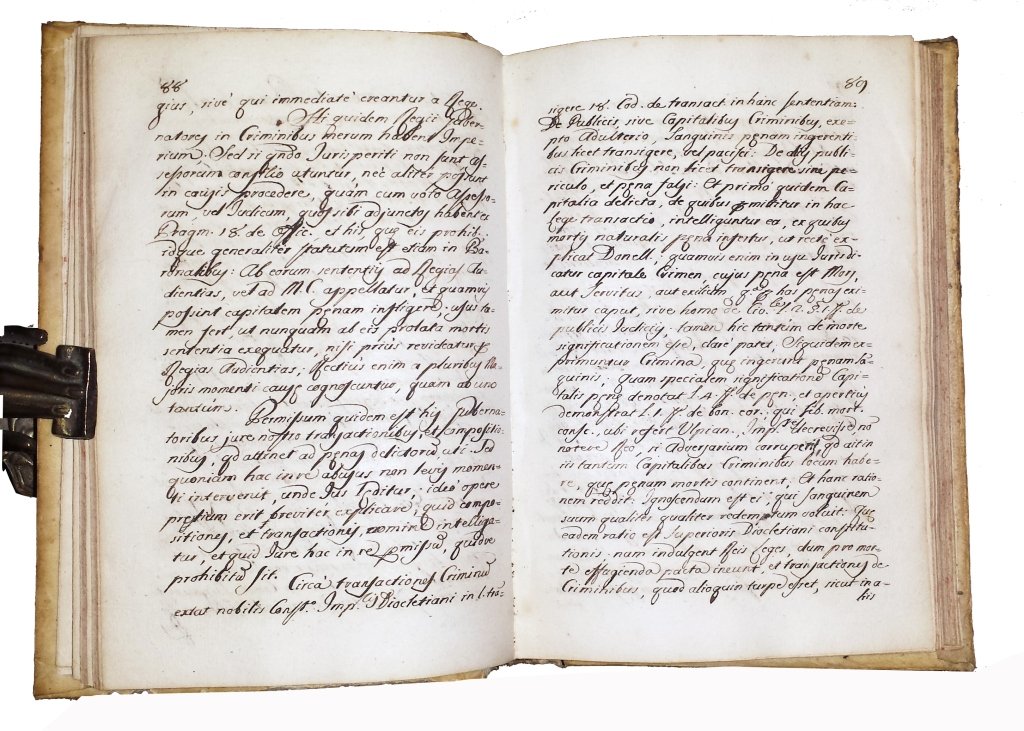 88
gius, sivè qui immediatè creantur a Rege.
Isti quidem Regii Guber=
natores in Criminibus merum habent Impe=
rium. Sed si qndo Jurisperiti non sunt as=
sessorum consilio utuntur, nec aliter possunt
in causis procedere, quàm cum voto Assesso=
rum, vel Judicum, quos sibi adjunctos habent ex
Pragm. 18 de Offic. et his, quæ eis prohib.
idque generaliter statutum est etiam in Ba=
ronalibus: Ab eorum sententijs ad Regias Au=
dientias, vel ad M. C. appellatur, et quamvis
possint capitalem penam infligere; usus ta=
men fert, ut nunquam ab eis prolata mortis
sententia exequatur, nisi priùs revideatur p
Regias Audientias; Rectiùs enim a pluribus Ma=
joris momenti causæ cognoscuntur, quam ab uno
tantùm.
Permissum quidem est his Guberna=
toribus jure nostro transactionibus, et compositio=
nibus, qd attinet ad penas delictorũ uti. Sed
quoniam hac in re abusus non levis momen=
ti intervenit, unde Jus reditur, ideò opere
prætium erit breviter explicare, quid compo=
sitiones, et transactiones nomine intelliga=
tur, et quid Jure hac in re pmissũ, quidve
prohibitũ sit.
Circa transactiones Criminũ
extat nobilis Const.º Imp. Diocletiani in l. trã=
89
sigere 18. Cod. de transact in hanc sententiam:
De Publicis sive Capitalibus Criminibus, exce=
pto Adulterio, Sanguinis penam ingerenti=
bus licet transigere, vel pacisci: De alijs publi=
cis Criminibus non licet transigere sine pe=
riculo, et pena falsi: Et primò quidem Ca=
pitalia delicta, de quibus pmittitur in hac
lege transactio, intelliguntur ea, ex quibus
mortis naturalis pena infertur, ut rectè ex=
plicat Donell., quamvis enim in usu Jurisdi=
catur capitale Crimen, cujus pena est Mors,
aut Servitus, aut exilium, q.ª p has penas exi=
mitur caput, sive homo de Co. l. 2. ff. de
publicis Judicijs, tamen hic tantùm de morte
significationem esse, clarè patet. Siquidem ex=
primuntur Crimina, quæ ingerunt penam sã=
guinis; Quam specialem significationẽ Capi=
talis penæ denotat l. 4. ff. de pen., et apertiùs
demonstrat l. 1. ff. de bon. eor., qui sib. mort.
consc., ubi refert Ulpian., Imp.re decrevisse, nõ
nocere Reo, si Adversarium corruperit, qd ait in
iis tantum Capitalibus Criminibus locum habe=
re, quæ penam mortis continent. Et hanc ratio=
nem reddit: Ignoscendum est ei; qui sanguinem
suum qualiter qualiter redemptum voluit: Quæ
eadem ratio est superioris Diocletiani constitu=
tionis: nam indulgent Reis leges, dum pro mor=
te effugienda pacta ineunt, et transactiones de
Criminibus, quod alioquin turpe esset, sicut in a=
liis